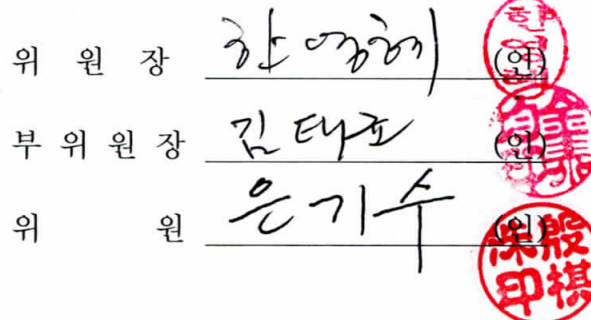 위 원 장 한영혜 (인)
부 위 원 장 김태균 (인)
위 원 은기수 (인)